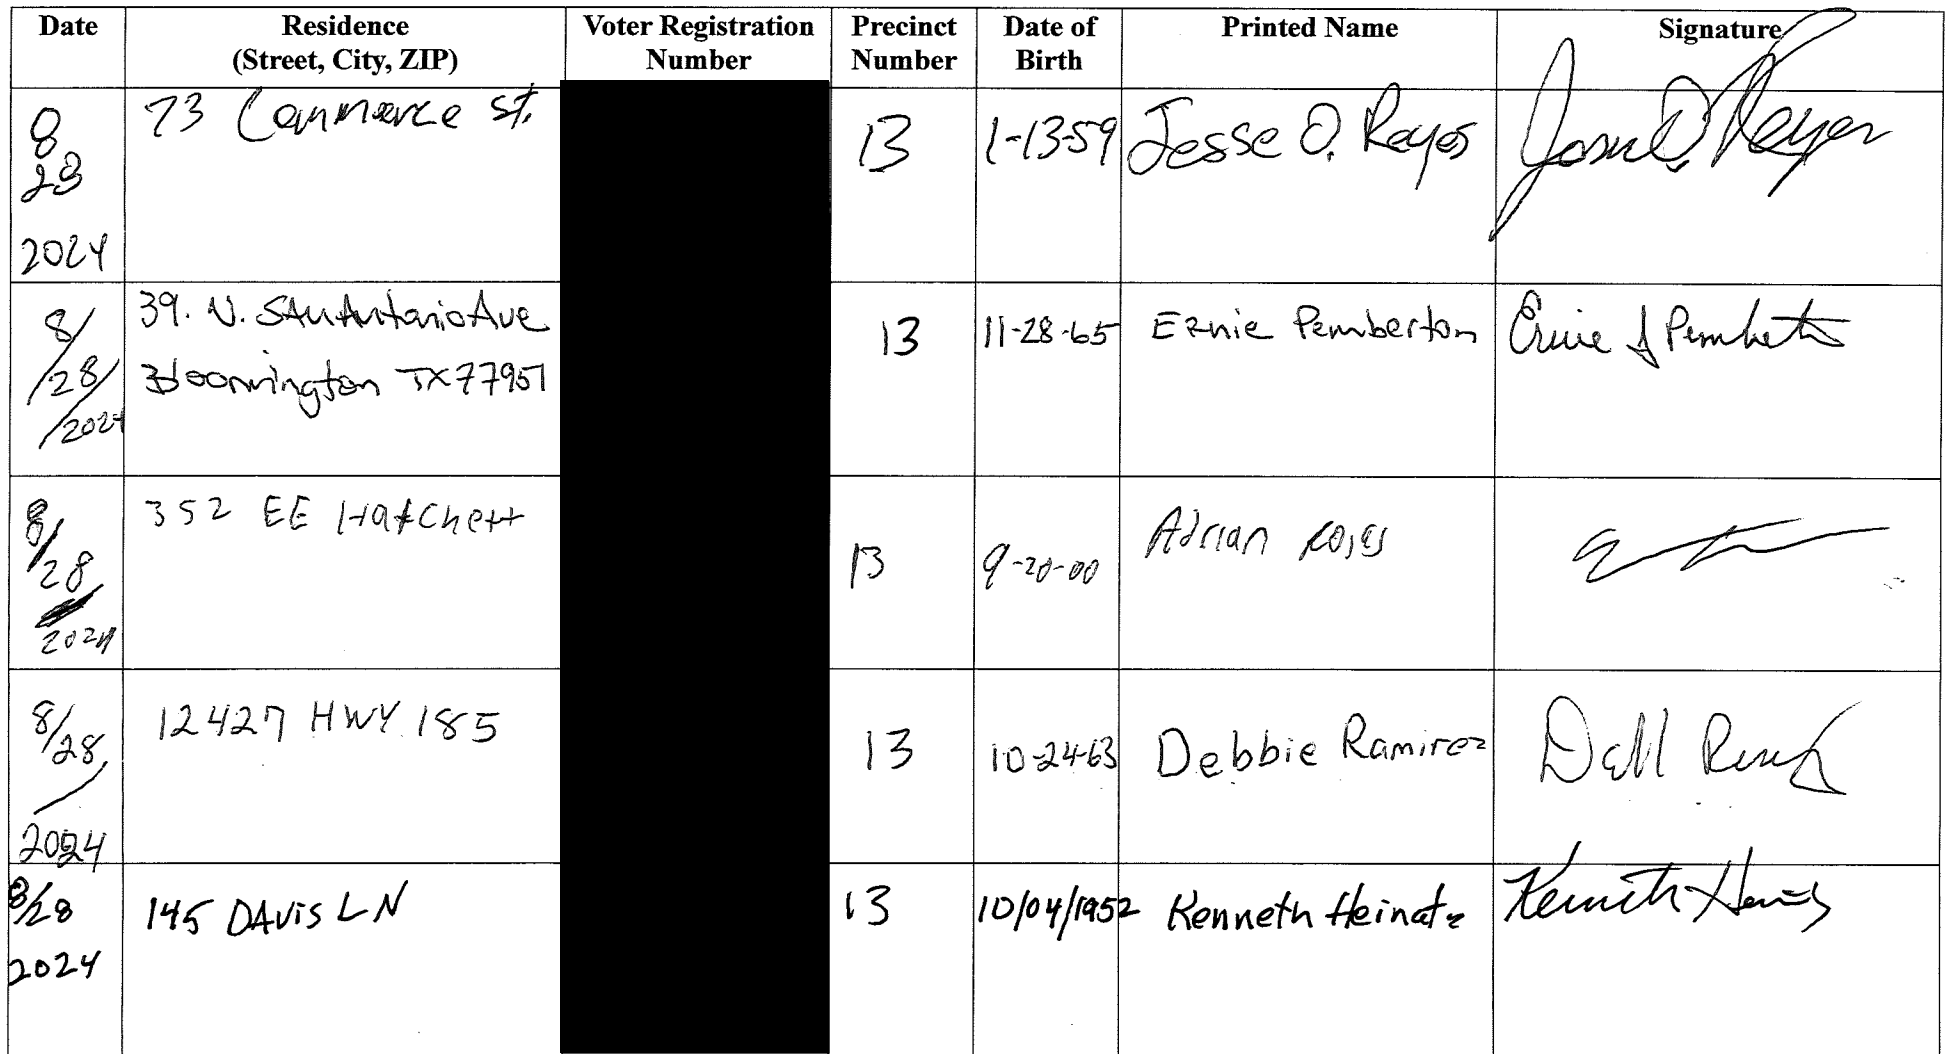 Date Residence (Street, City, ZIP) Voter Registration Number Precinct Number Date of Birth Printed Name Signature
8 28 2024 73 Commerce St. 13 1-13-59 Jesse O. Reyes
8/28/2024 39. N. San Antonio Ave Bloomington TX 77951 13 11-28-65 Ernie Pemberton Ernie J Pemberton
8/28 2024 352 EE Hatchett 13 9-20-00 Adrian Rojas
8/28/2024 12427 HWY 185 13 10-24-63 Debbie Ramirez
8/28 2024 145 DAVIS LN 13 10/04/1952 Kenneth Heinatz Kenneth